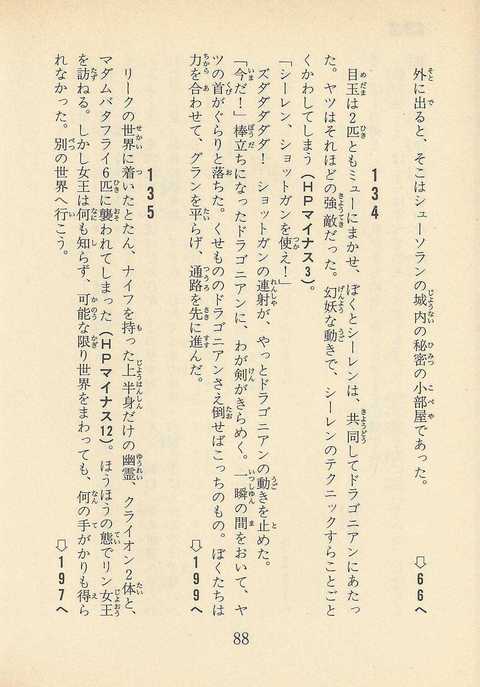 外に出ると、そこはシューソランの城内の秘密の小部屋であった。
⇨66へ
134
目玉は2匹ともミューにまかせ、ぼくとシーレンは、共同してドラゴニアンにあたっ
た。ヤツはそれほどの強敵だった。幻妖な動きで、シーレンのテクニックすらことごと
くかわしてしまう（HPマイナス3）。
「シーレン、ショットガンを使え！」
ズダダダダダ！　ショットガンの連射が、やっとドラゴニアンの動きを止めた。
「今だ！」棒立ちになったドラゴニアンに、わが剣がきらめく。一瞬の間をおいて、ヤ
ツの首がぐらりと落ちた。くせもののドラゴニアンさえ倒せばこっちのもの。ぼくたちは
力を合わせて、グランを平らげ、通路を先に進んだ。
⇨199へ
135
リークの世界に着いたとたん、ナイフを持った上半身だけの幽霊、クライオン2体と、
マダムバタフライ6匹に襲われてしまった（HPマイナス12）。ほうほうの態でリン女王
を訪ねる。しかし女王は何も知らず、可能な限り世界をまわっても、何の手がかりも得ら
れなかった。別の世界へ行こう。
⇨197へ
88